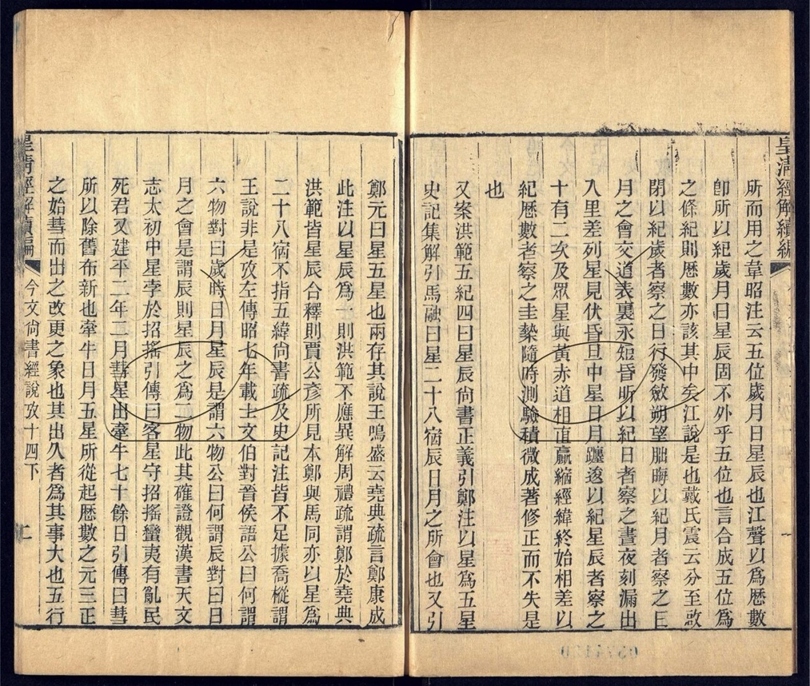 皇清經解續編
所而用之韋昭注云五位歲月日星辰也江聲以爲厤數
卽所以紀歲月曰星辰固不外乎五位也言合成五位爲
之條紀則厤數亦該其中矣江說是也戴氏震云分至啟
閉以紀歲者察之日行發斂朔望朏晦以紀月者察之日
月之會交道表裏永短昏昕以紀日者察之晝夜刻漏出
入里差列星見伏昏旦中星日月躔逡以紀星辰者察之
十有二次及眾星與黃赤道相直贏縮經緯終始相差以
紀厤數者察之圭槷隨時測驗積微成著修正而不失是
也
又案洪範五紀四曰星辰尙書正義引鄭注以星爲五星
史記集解引馬融曰星二十八宿辰日月之所會也又引
鄭元曰星五星也兩存其說王鳴盛云堯典疏言鄭康成
此注以星辰爲一則洪範不應異解周禮疏謂鄭於堯典
洪範皆星辰合釋則賈公彥所見本鄭與馬同亦以星爲
二十八宿不指五緯尙書疏及史記注皆不足據喬樅謂
王說非是攷左傳昭七年載士文伯對晉侯語公曰何謂
六物對曰歲時日月星辰是謂六物公曰何謂辰對曰日
月之會是謂辰則星辰之爲二物此其確證觀漢書天文
志太初中星孛於招搖引傳曰客星守招搖蠻夷有亂民
死君又建平二年二月彗星出牽牛七十餘日引傳曰彗
所以除舊布新也牽牛日月五星所從起厤數之元三正
之始彗而出之改更之象也其出久者爲其事大也五行
皇淸經解續編
今文尙書經說攷十四下
二